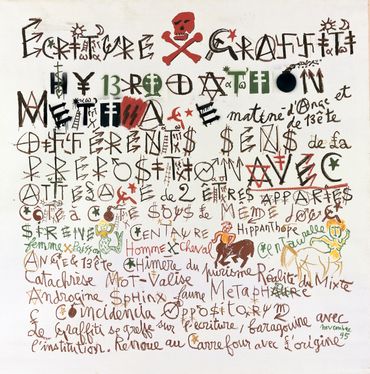 ÉCRITURE GRAFFITI
HYBRIDATION
METISSAGE matine d'Ange et
de Bête
DIFFERENTS SENS de la
PREPOSITION AVEC
ATTELAGE de 2 ÊTRES APPARIES
COTE à COTE SOUS le MEME JOUG
SIRENE CENTAURE HippAnthope
femme x Poisson Homme x Cheval Centaurelle
Ange & Bête Chimera du purisme Réalité du Mixte
Catachrèse Mot-Valise
Androgine Sphinx faune Metaphore
Coincidenta OppositoruM
Le Graffiti se greffe sur l'écriture, baragouine avec
l'institution. Renoue au Carrefour avec l'origine
novembre 95